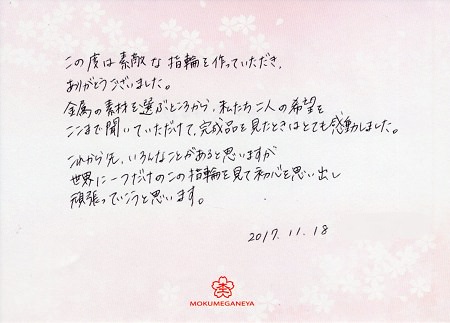 この度は素敵な指輪を作っていただき、
ありがとうございました。
金属の素材を選ぶところから、私たち二人の希望を
ここまで聞いていただけて、完成品を見たときはとても感動しました。
これから先、いろんなことがあると思いますが
世界に一つだけのこの指輪を見て初心を思い出し
頑張っていこうと思います。
2017.11.18
MOKUMEGANEYA